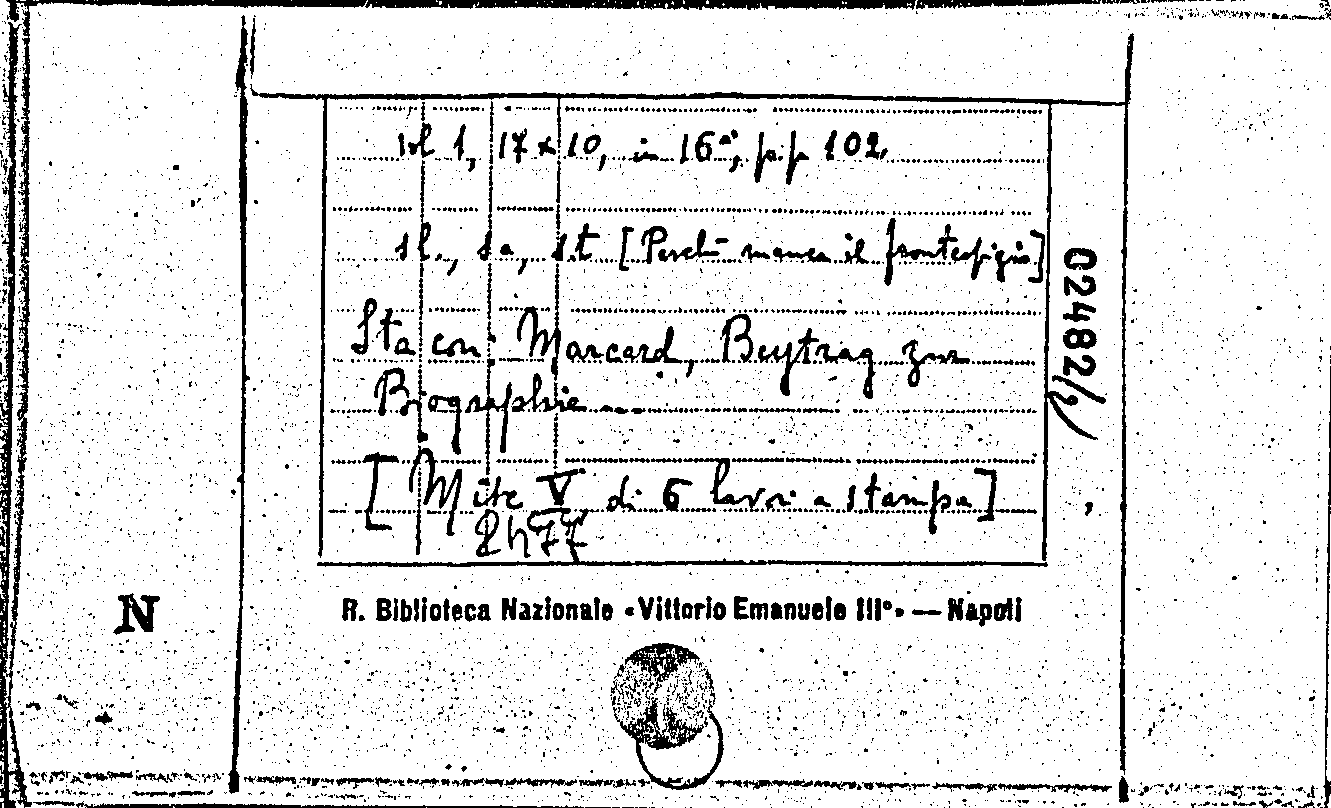 vol 1, 17 x 10, in 16°, pp 102.
s.l., s.a, s.t [Perchè manca il frontespizio]
Sta con: Marcard, Beytrag zur
Biographie....
[Misc V di 6 lavori a stampa]
02482/
R. Biblioteca Nazionale «Vittorio Emanuele III°» — Napoli
N